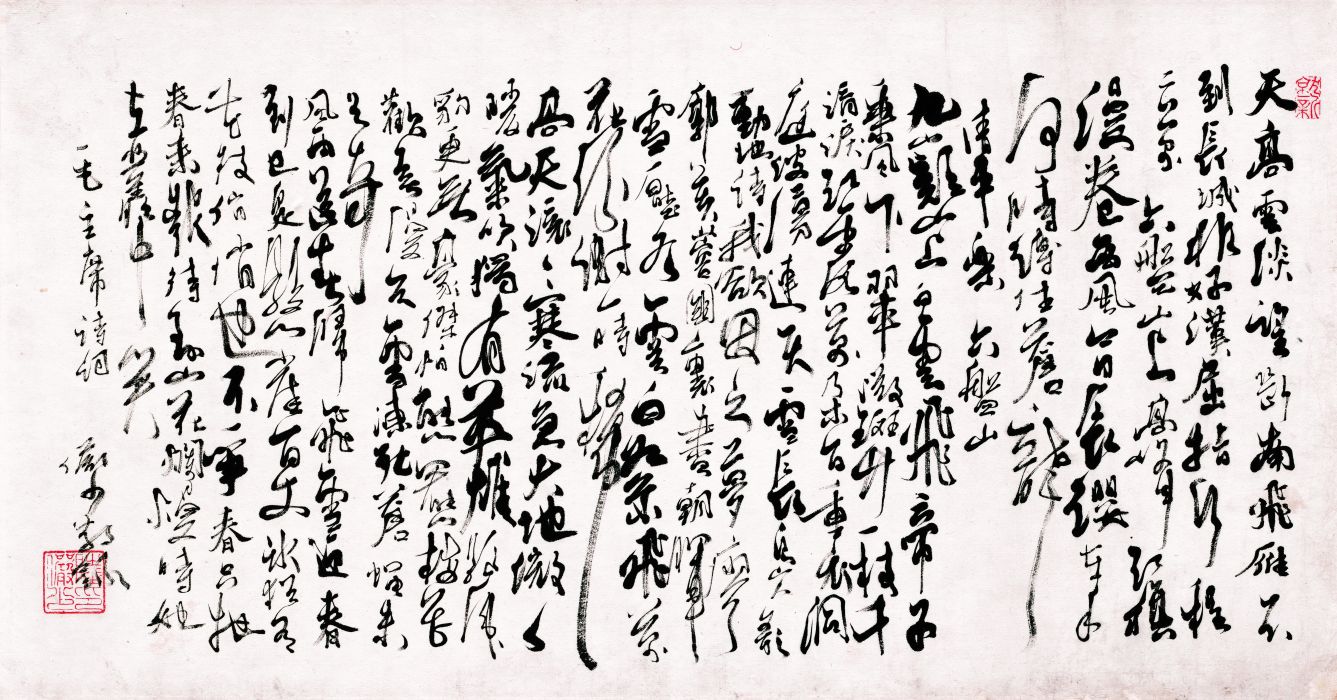 天高雲淡望斷南飛雁不
到長城非好漢屈指行程
二萬 六盤山上高峰紅旗
漫卷西風今日長纓在手
何時縛住蒼龍
清平樂 六盤山
九嶷山上白雲飛帝子
乘風下翠微斑竹一枝千
滴淚紅霞萬朵百重衣洞
庭波湧連天雪長島人歌
動地詩我欲因之夢寥
廓芙蓉國裏盡朝暉
雪壓冬雲白絮飛萬
花紛謝一時稀
高天滾々寒流急大地微々
暖氣吹獨有英雄驅虎
豹更無豪傑怕熊羆梅花
歡喜漫天雪凍死蒼蠅未
足奇
風雨送春歸飛雪迎春
到已是懸崖百丈冰猶有
花枝俏俏也不爭春只把
春來報待到山花爛漫時她
在叢中笑
毛主席詩詞